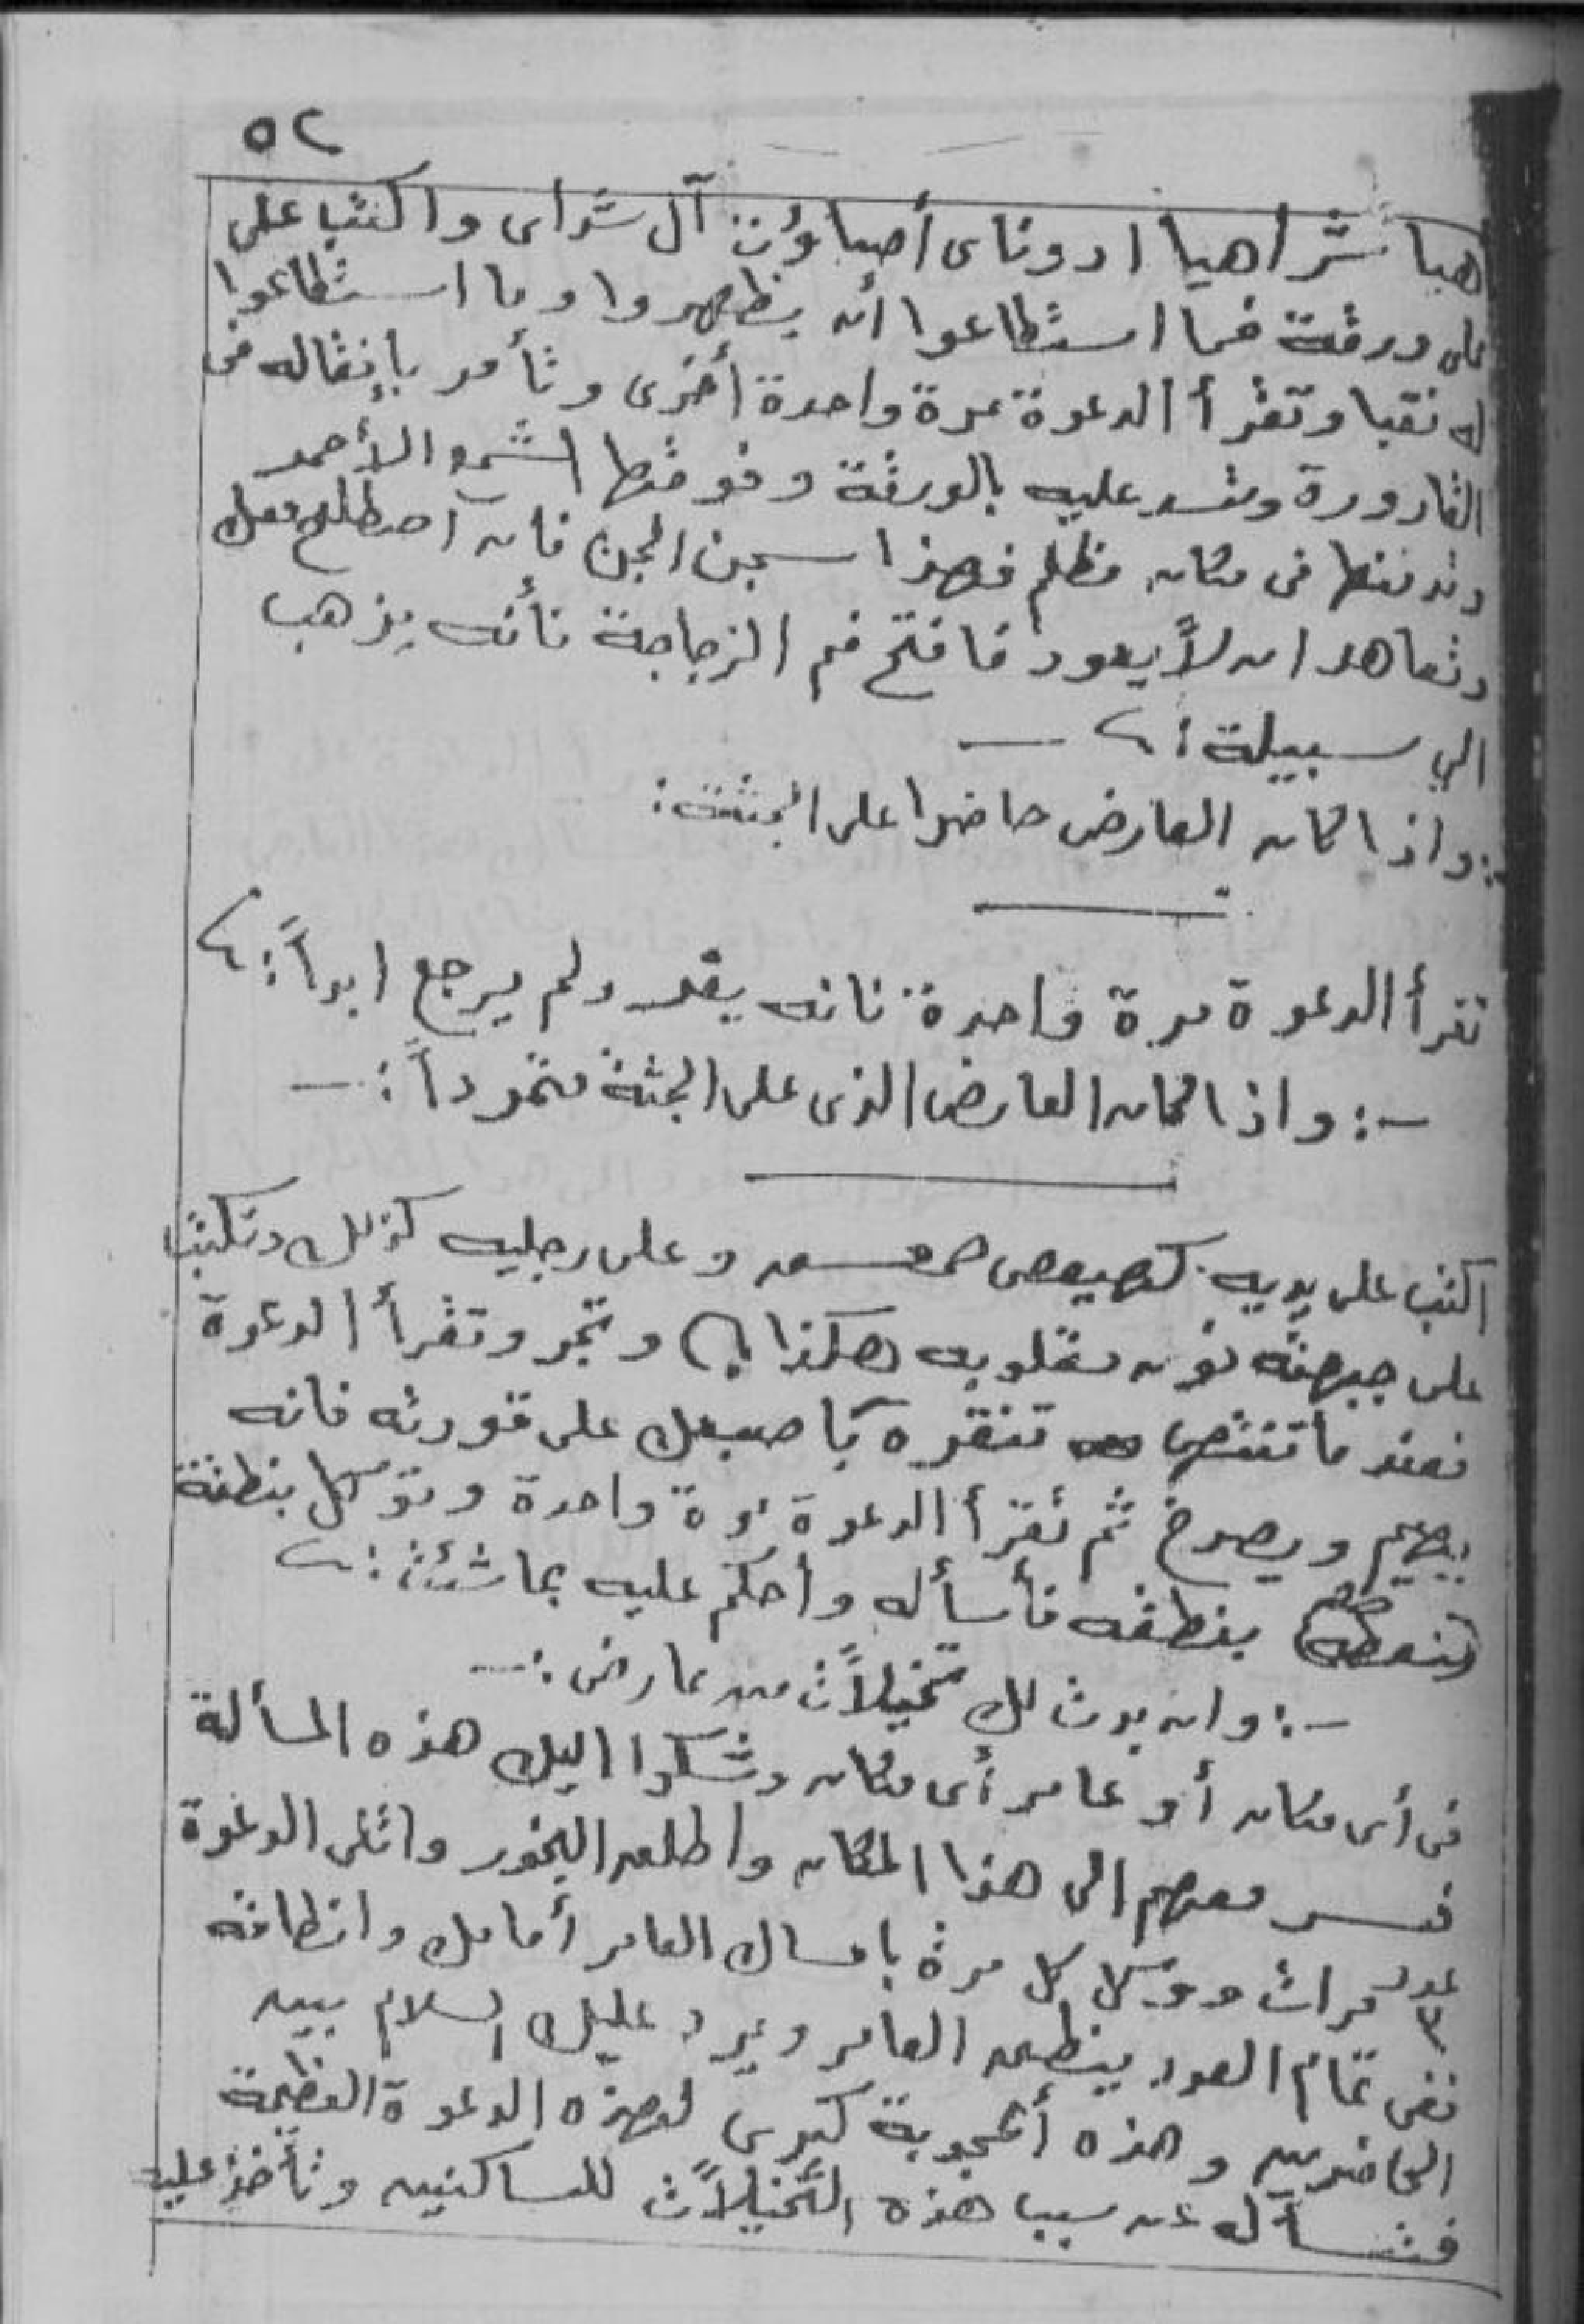 ٥٢
هيا شراهيا ادوناى أصباؤت آل شداى واكتب على
على ورقة فما استطاعوا أن يظهروا وما استطاعوا
له نقبا وتقرأ الدعوة مرة واحدة أخرى وتأمر بإنقاله فى
القارورة وتسد عليه بالورقة وفوقها الشمع الأحمر
وتدفنها فى مكان مظلم فهذا سجن الجن فان اصطلح معك
وتعاهد ان لا يعود فافتح فم الزجاجة فأنه يذهب
الي سبيلة :
:واذا كان العارض حاضرا على الجثة:
تقرأ الدعوة مرة واحدة فانه يفر ولم يرجع ابداً:
-: واذا كان العارض الذى على الجثة متمرداً :-
اكتب على يديه كهيعص حمعسق وعلى رجليه كذلك وتكتب
على جبهته نون مقلوبه هكذا () وتبخر وتقرأ الدعوة
فعند ما تنتهى تنقره بأصبعك على قورته فانه
يهيم ويصرخ ثم تقرأ الدعوة مرة واحدة وتوكل بنطقة
بنطقه فأسأله وأحكم عليه بما شئت :
-: وان بدت لك تخيلات من عارض :-
فى أى مكان أو عامر أى مكان وشكوا اليك هذه المسألة
فسر معهم الى هذا المكان واطلق البخور واتلى الدعوة
عدد ٣ مرات ووكل كل مرة بامساك العامر أمامك وانطاقه
ففى تمام العدد ينطق العامر ويرد عليك السلام بين
الحاضرين وهذه أعجوبة كبرى لهذه الدعوة العظيمة
فتسأله عن سبب هذه التخيلات للساكنين وتأخذ عليه